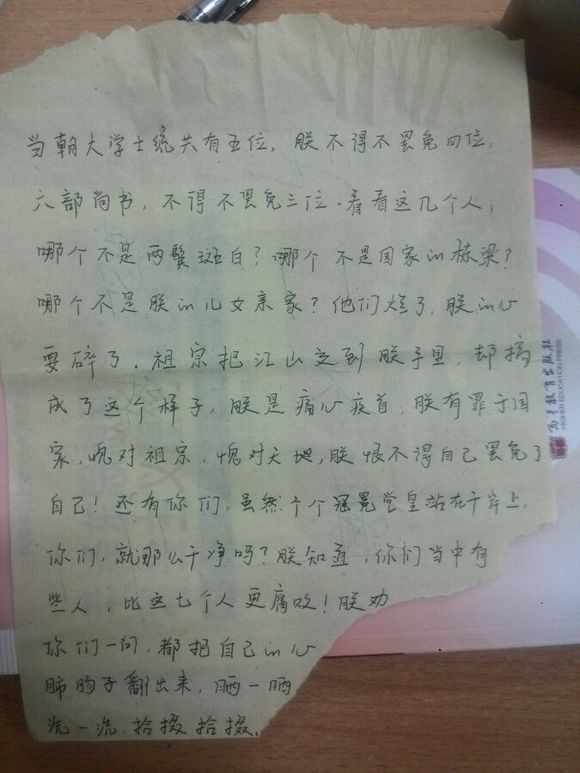 当朝大学士统共有五位，朕不得不罢免四位，
六部尚书，不得不罢免三位。看看这几个人，
哪个不是两鬓斑白？哪个不是国家的栋梁？
哪个不是朕的儿女亲家？他们烂了，朕的心
要碎了。祖宗把江山交到朕手里，却搞
成了这个样子，朕是痛心疾首，朕有罪于国
家，愧对祖宗，愧对天地，朕恨不得自己罢免了
自己！还有你们，虽然个个冠冕堂皇站在干岸上，
你们，就那么干净吗？朕知道，你们当中有
些人，比这七个人更腐败！朕劝
你们一句，都把自己的心
肺肠子翻出来，晒一晒
洗一洗，拾掇拾掇，
高等教育出版社
HIGHER EDUCATION PRESS